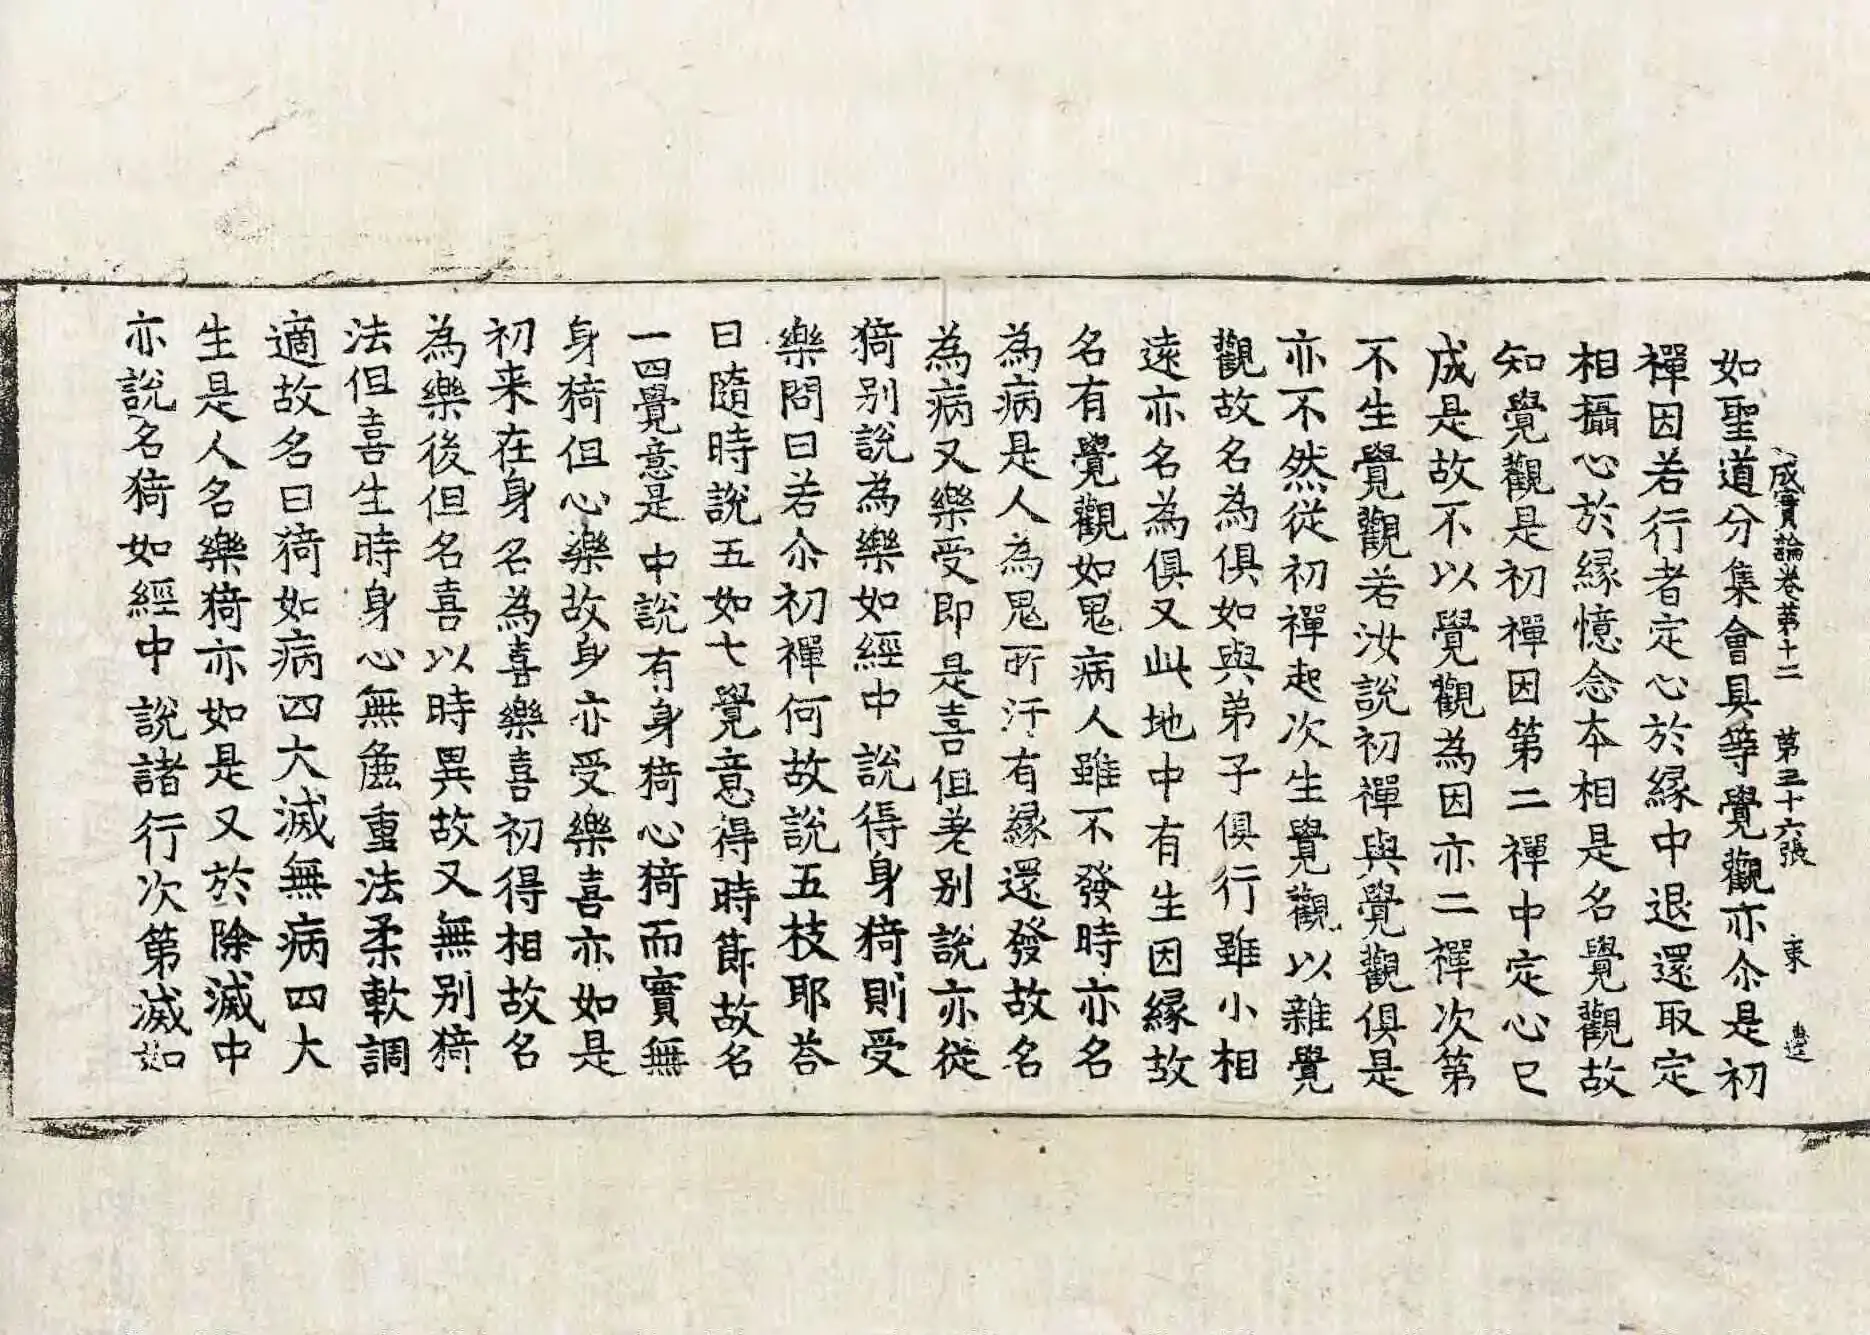 成實論卷苐十二 第三十六張 東
如聖道分集會具等覺觀亦尒是初
禪因若行者定心於縁中退還取定
相攝心於縁憶念本相是名覺觀故
知覺觀是初禪因第二禪中定心已
成是故不以覺觀為因亦二禪次第
不生覺觀若汝說初禪與覺觀俱是
亦不然從初禪起次生覺觀以雜覺
觀故名為俱如與弟子俱行雖小相
遠亦名為俱又此地中有生因縁故
名有覺觀如鬼病人雖不發時亦名
為病是人為鬼所汙有縁還發故名
為病又樂受即是喜但差别說亦從
猗别說為樂如經中說得身猗則受
樂問曰若尒初禪何故說五枝耶荅
曰隨時說五如七覺意得時節故名
一四覺意是中說有身猗心猗而實無
身猗但心樂故身亦受樂喜亦如是
初来在身名為喜樂喜初得相故名
為樂後但名喜以時異故又無别猗
法但喜生時身心無麁重法柔軟調
適故名曰猗如病四大滅無病四大
生是人名樂猗亦如是又於除滅中
亦說名猗如經中說諸行次第滅如